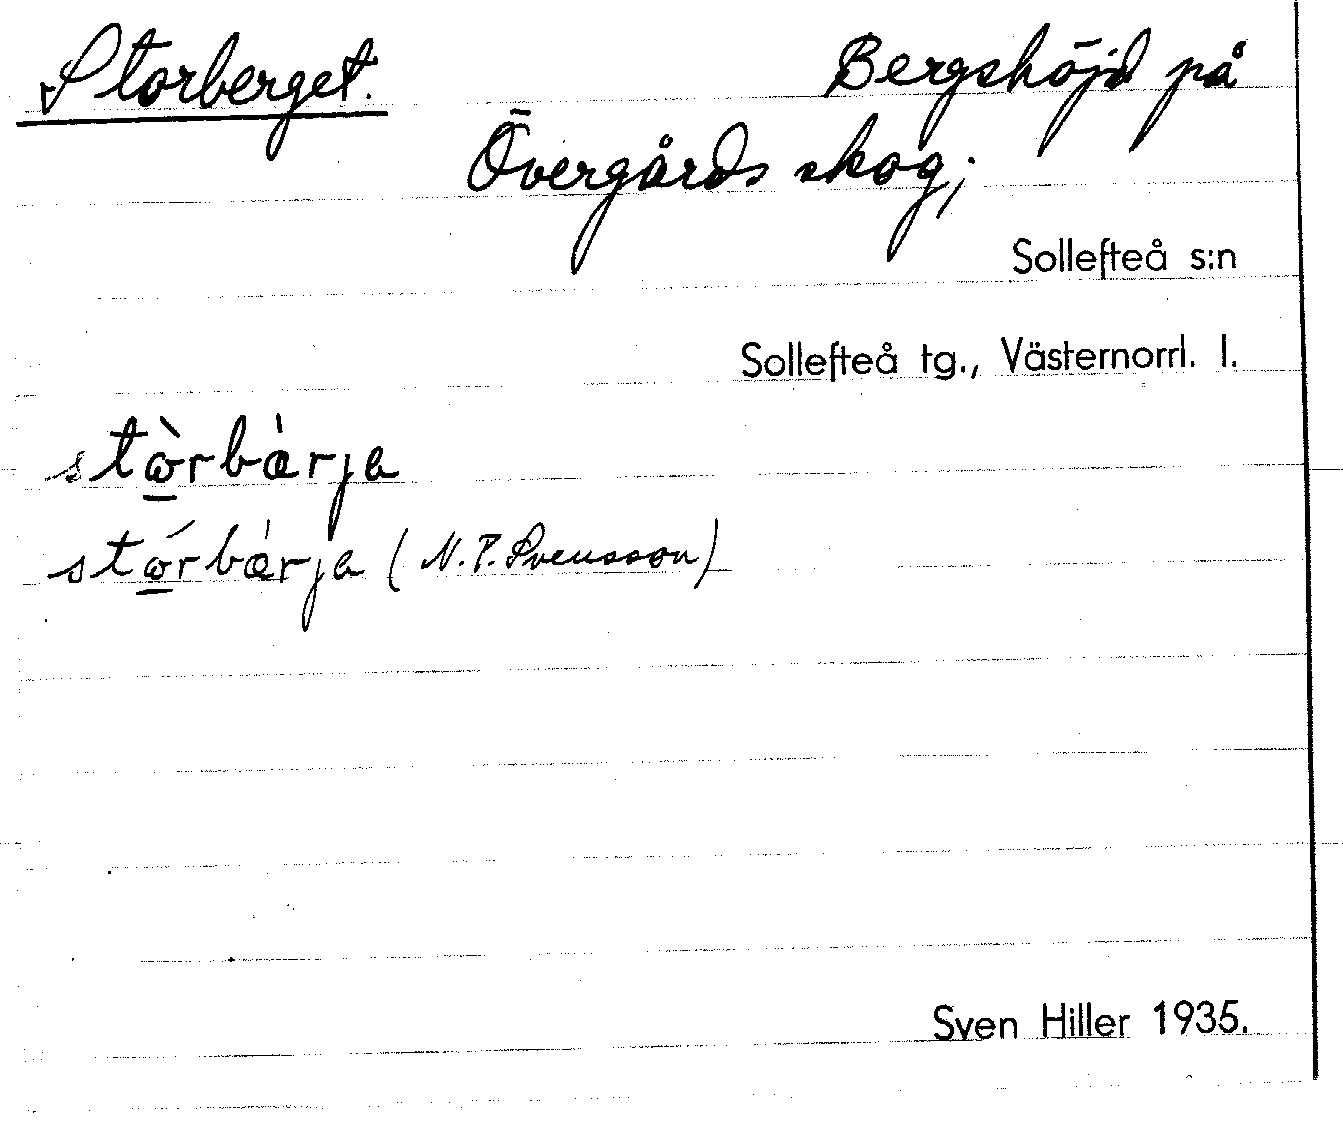 Storberget. Bergshöjd på
Övergårds skog;
Sollefteå s:n
Sollefteå tg., Västernorrl. l.
stὼ̲rbà̍rja
stώ̲rbà̍rja (N. P. Svensson)
Sven Hiller 1935.